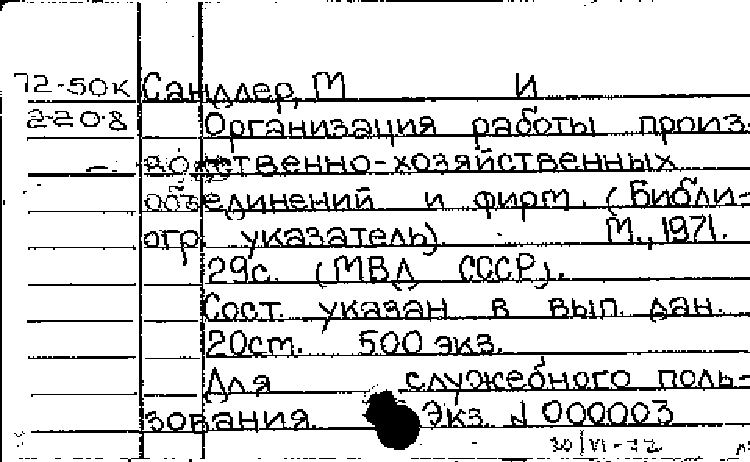 72-50к Сандлер, М И
2208 Организация работы произ-
водственно-хозяйственных
объединений и фирм. (Библи-
огр. указатель). М., 1971.
29с. (МВД СССР).
Сост. указан в вып. дан.
20см. 500 экз.
Для служебного поль-
зования. Экз. № 000003
30/VI-72